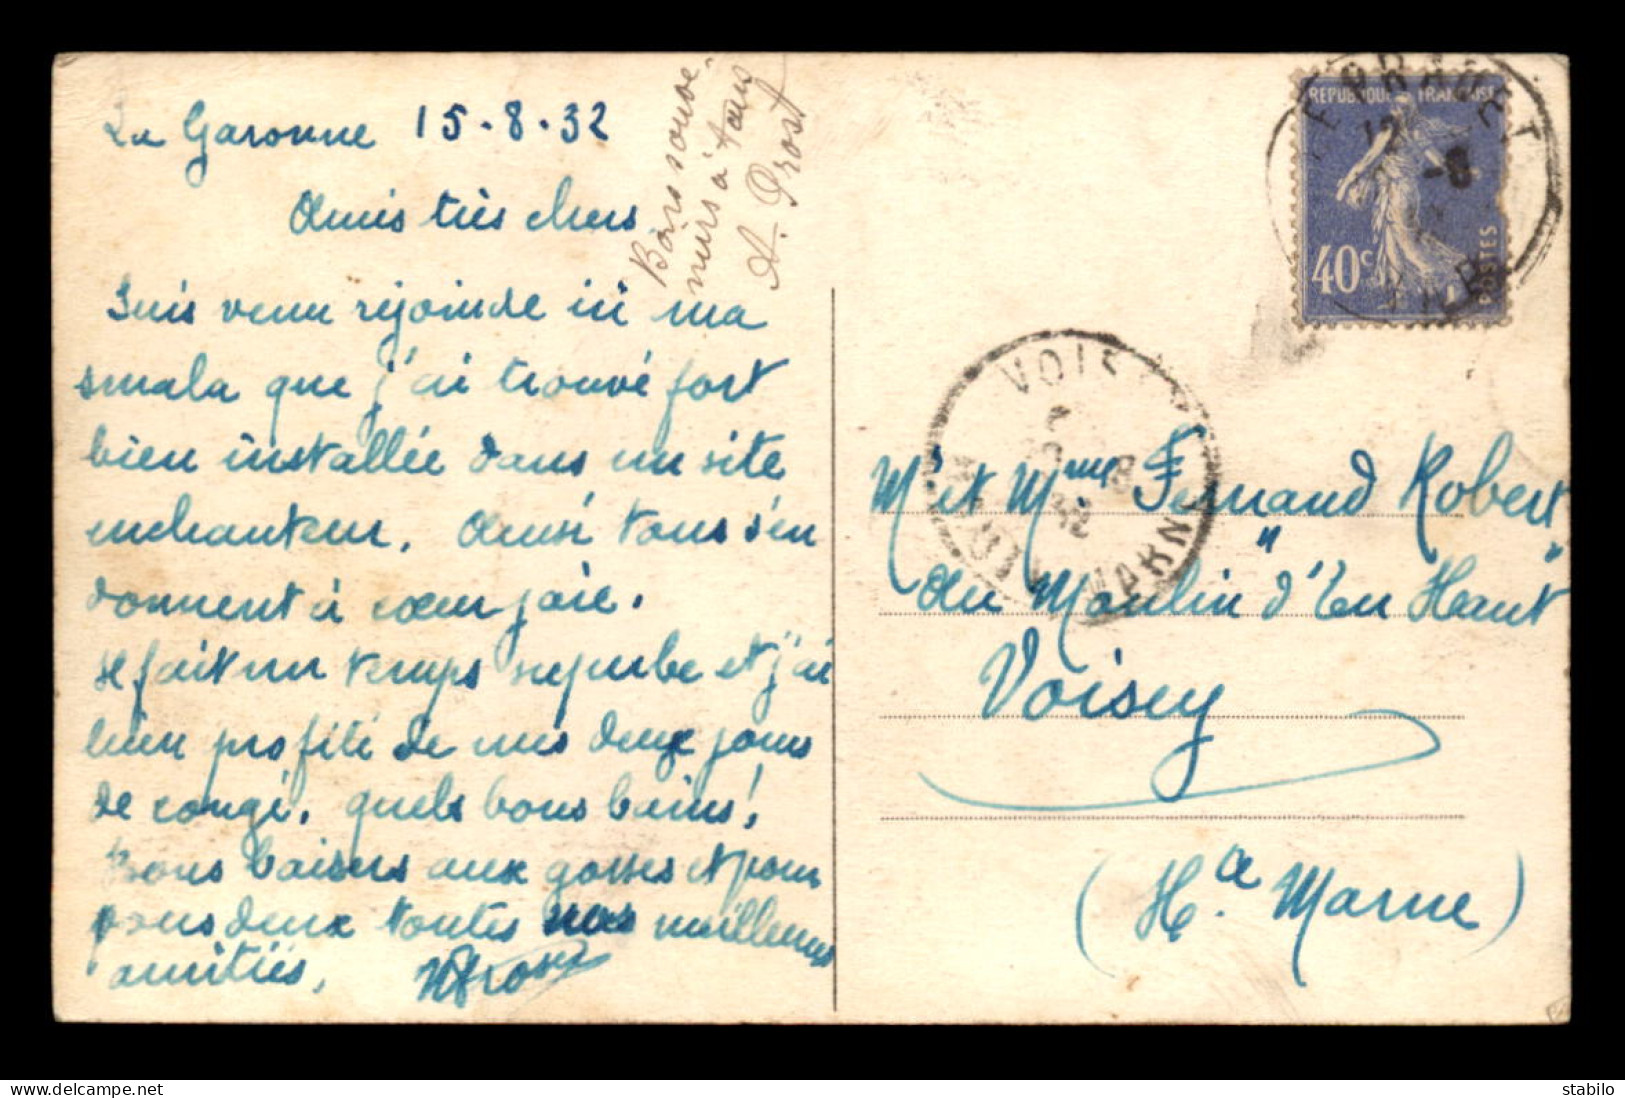 La Garonne 15-8-32
Amis très chers
Bons souve-
nirs à tous
A. Prost
Suis venu rejoindre ici ma
smala que j'ai trouvé fort
bien installée dans un site
enchanteur. Aussi tous s'en
donnent à cœur joie.
Il fait un temps superbe et j'ai
bien profité de mes deux jours
de congé. quels bons bains!
Bons baisers aux gosses et pour
vous deux toutes nos meilleures
amitiés.
REPUBLIQUE FRANCAISE
40c
POSTES
VOISEY
HTE MARNE
Mr et Mme Fernand Robert
au Moulin "d'En Haut"
Voisey
(Hte Marne)
delcampe.net
stabilo